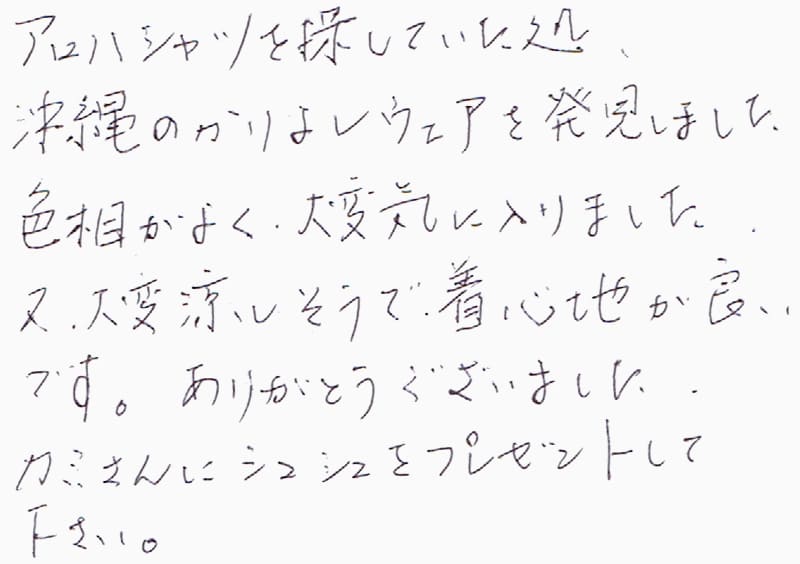 アロハシャツを探していた処、
沖縄のかりよしウェアを発見しました
色相がよく、大変気に入りました.
又、大変涼しそうで、着心地が良い
です。ありがとうございました.
カミさんにシュシュをプレゼントして
下さい。